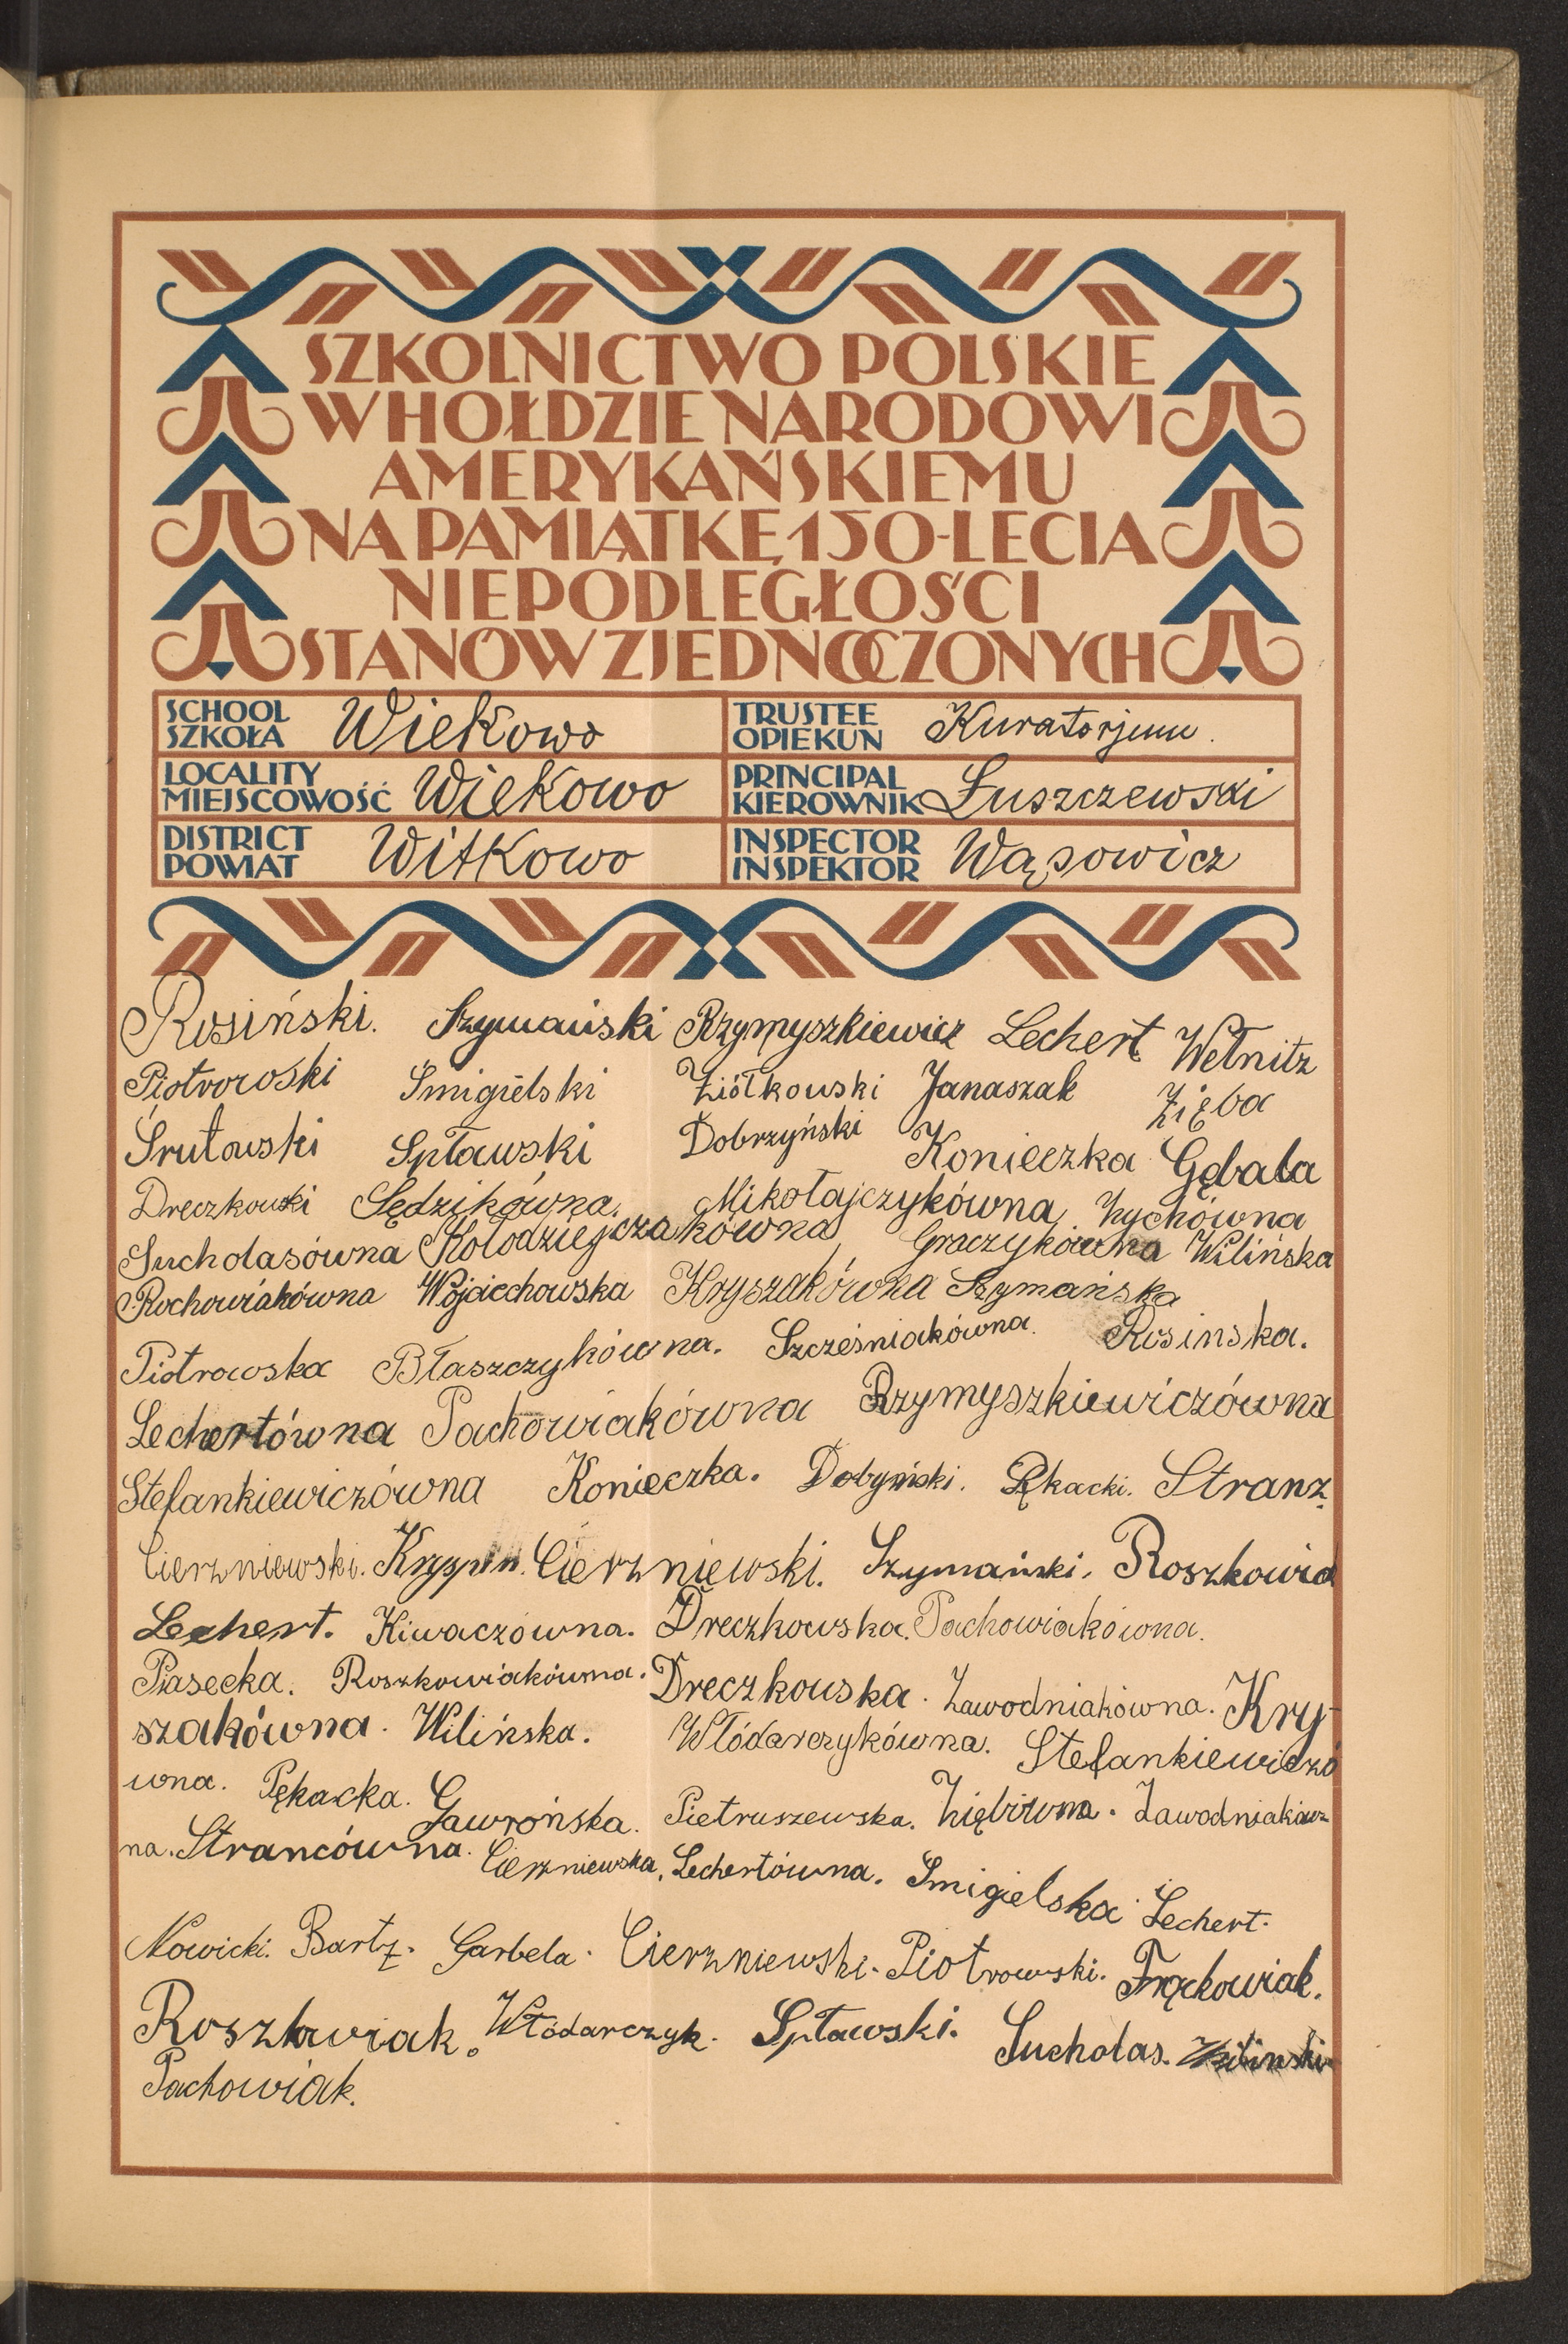 SZKOLNICTWO POLSKIE
W HOŁDZIE NARODOWI
AMERYKAŃSKIEMU
NA PAMIĄTKĘ 150-LECIA
NIEPODLEGŁOŚCI
STANÓW ZJEDNOCZONYCH
SCHOOL SZKOŁA Wiekowo
TRUSTEE OPIEKUN Kuratorjum.
LOCALITY MIEJSCOWOŚĆ Wiekowo
PRINCIPAL KIEROWNIK Łuszczewski
DISTRICT POWIAT Witkowo
INSPECTOR INSPEKTOR Wąsowicz
Rosiński. Szymański Rzymyszkiewicz Lechert Wełnitz
Piotrowski Smigielski Ziółkowski Janaszak Zięba
Śrutowski Spławski Dobrzyński Konieczka Gębala
Dreczkowski Sędzikówna. Mikołajczykówna Zychówna
Sucholasówna Kołodziejczakówna Graczykówna Wilińska
Rochowiakówna Wojciechowska Kryszakówna Szymańska
Piotrowska Błaszczykówna. Szcześniakówna. Rosinska.
Lechertówna Pachowiakówna Rzymyszkiewiczówna
Stefankiewiczówna Konieczka. Dobyński. Pękacki. Stranz
Cierzniewski. Cierzniewski. Szymański. Roszkowia
Lechert. Kiwaczówna. Dreczkowska. Pachowiakówna.
Piasecka. Roszkowiakówna. Dreczkouska. Zawodniakówna. Kry-
szakówna. Wilińska. Włódarczykówna. Stefankiewiczó
wna. Pękacka. Gawrońska. Pietruszewska. Ziębówna. Zawodniaków-
na. Strancówna. Cierzniewska. Lechertówna. Smigielska Lechert.
Nowicki. Bartz. Garbela. Cierzniewski. Piotrowski. Frąckowiak.
Roszkwiak. Włódarczyk. Spławski. Sucholas. Wilinski
Pachowiak.